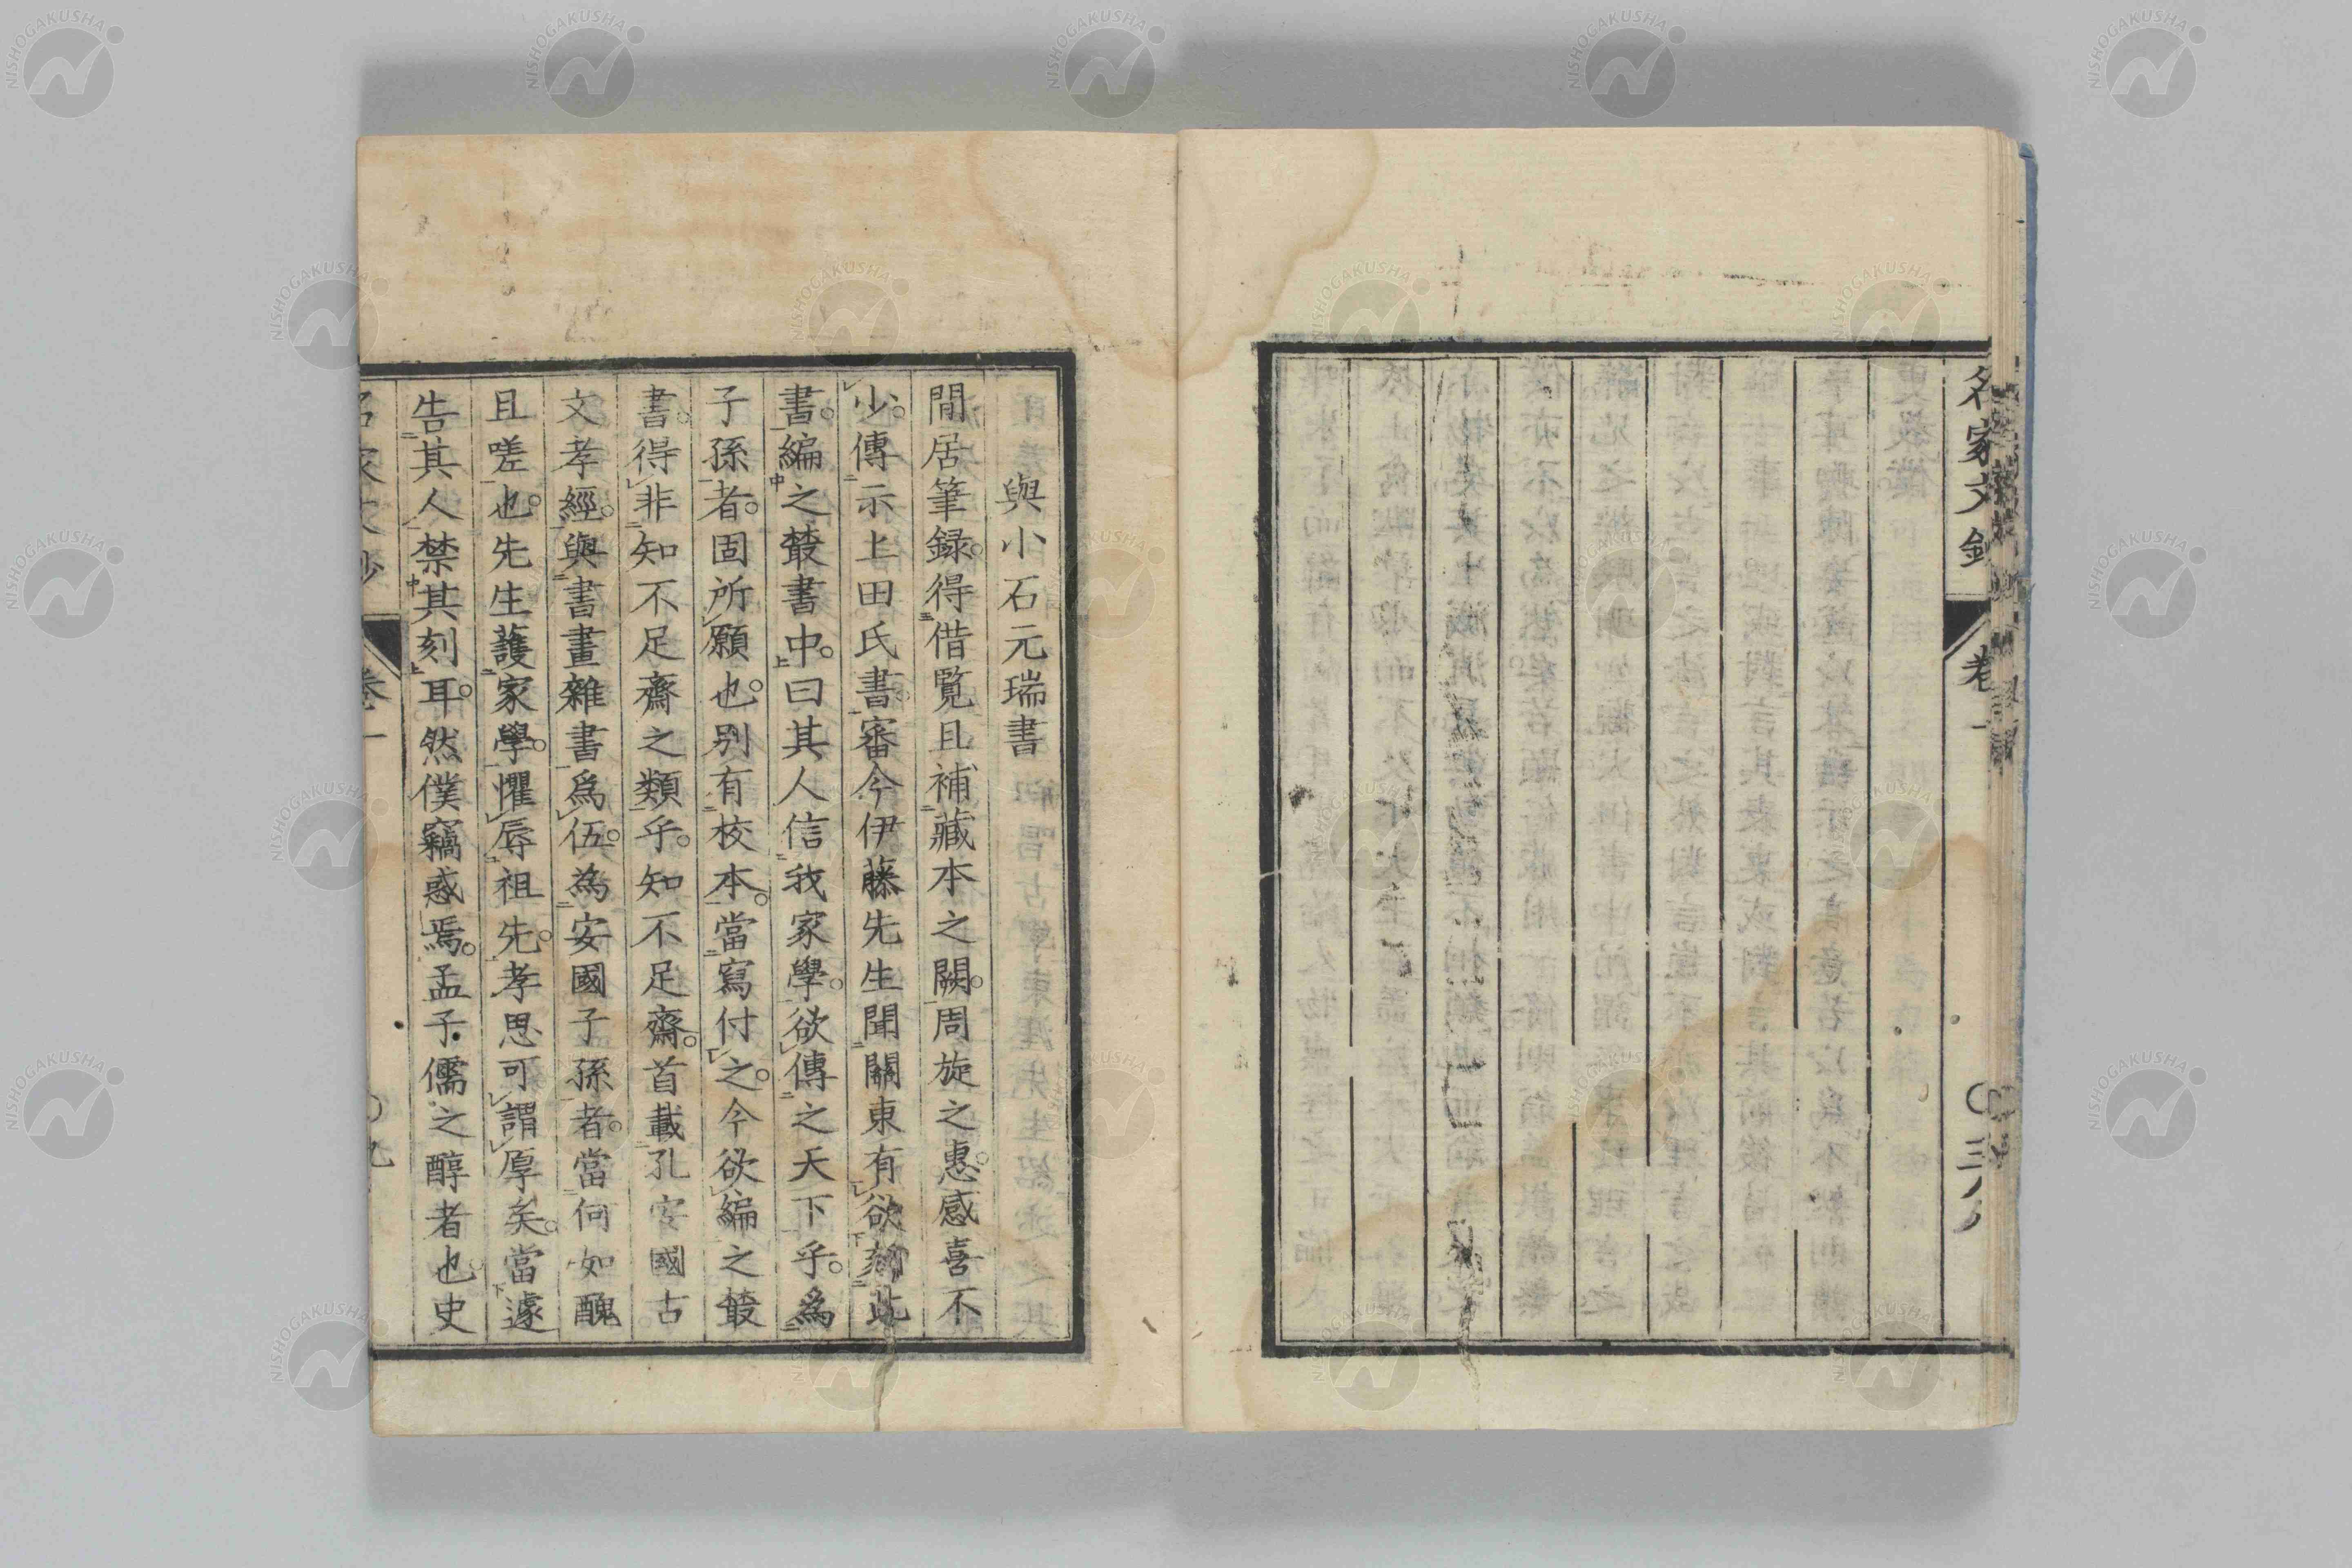 名家文鈔
卷一
與小石元瑞書
閒居筆録。得借覧且補藏本之闕。周旋之惠。感喜不
少。傳示上田氏書。審今伊藤先生聞關東有欲刻此
書。編之叢書中。曰其人信我家學。欲傳之天下乎。爲
子孫者。固所願也。別有校本。當寫付之。今欲編之叢
書。得非知不足齋之類乎。知不足齋。首載孔安國古
文孝經。與書畫雜書爲伍。為安國子孫者。當何如醜
且嗟也。先生護家學。懼辱祖先。孝思可謂厚矣。當遽
告其人禁其刻耳。然僕竊惑焉。孟子儒之醇者也。史
卷一
NISHOGAKUSHA